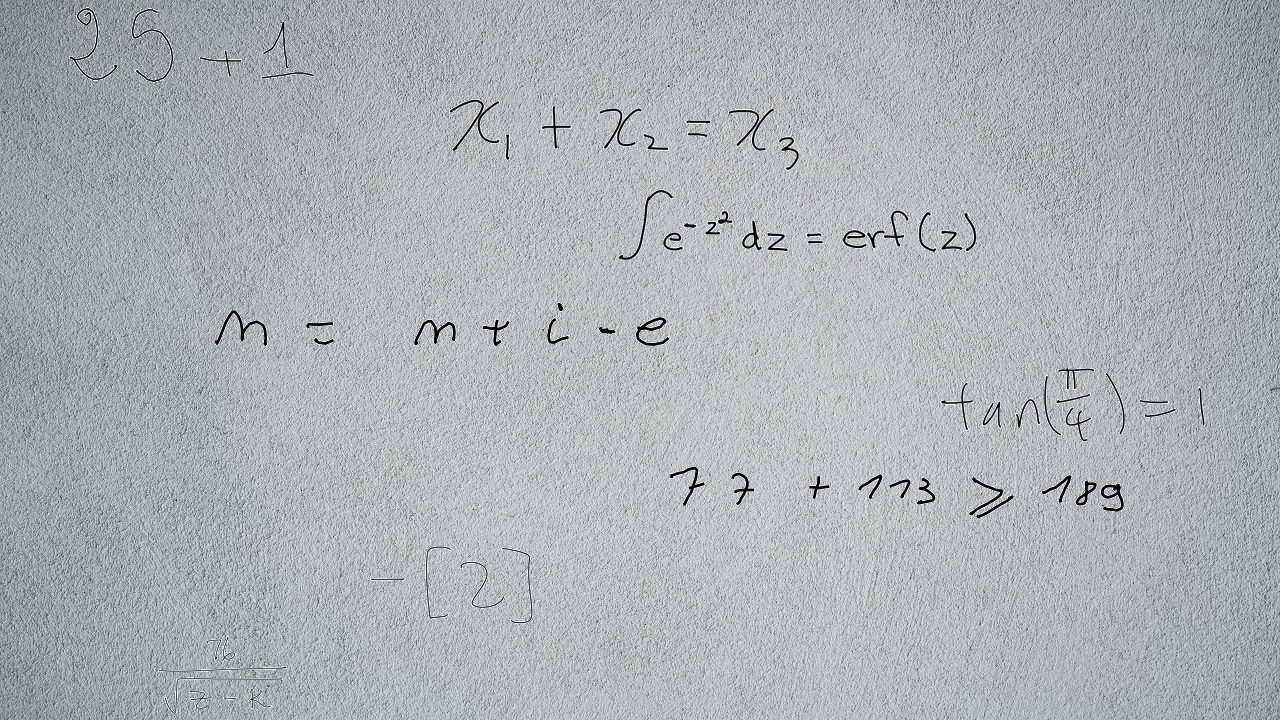 25 + 1
x₁ + x₂ = x₃
∫ e^{-z²} dz = erf(z)
n = n + i - e
tan(π/4) = 1
77 + 113 ⩾ 189
- [2]
76/√(z - k)